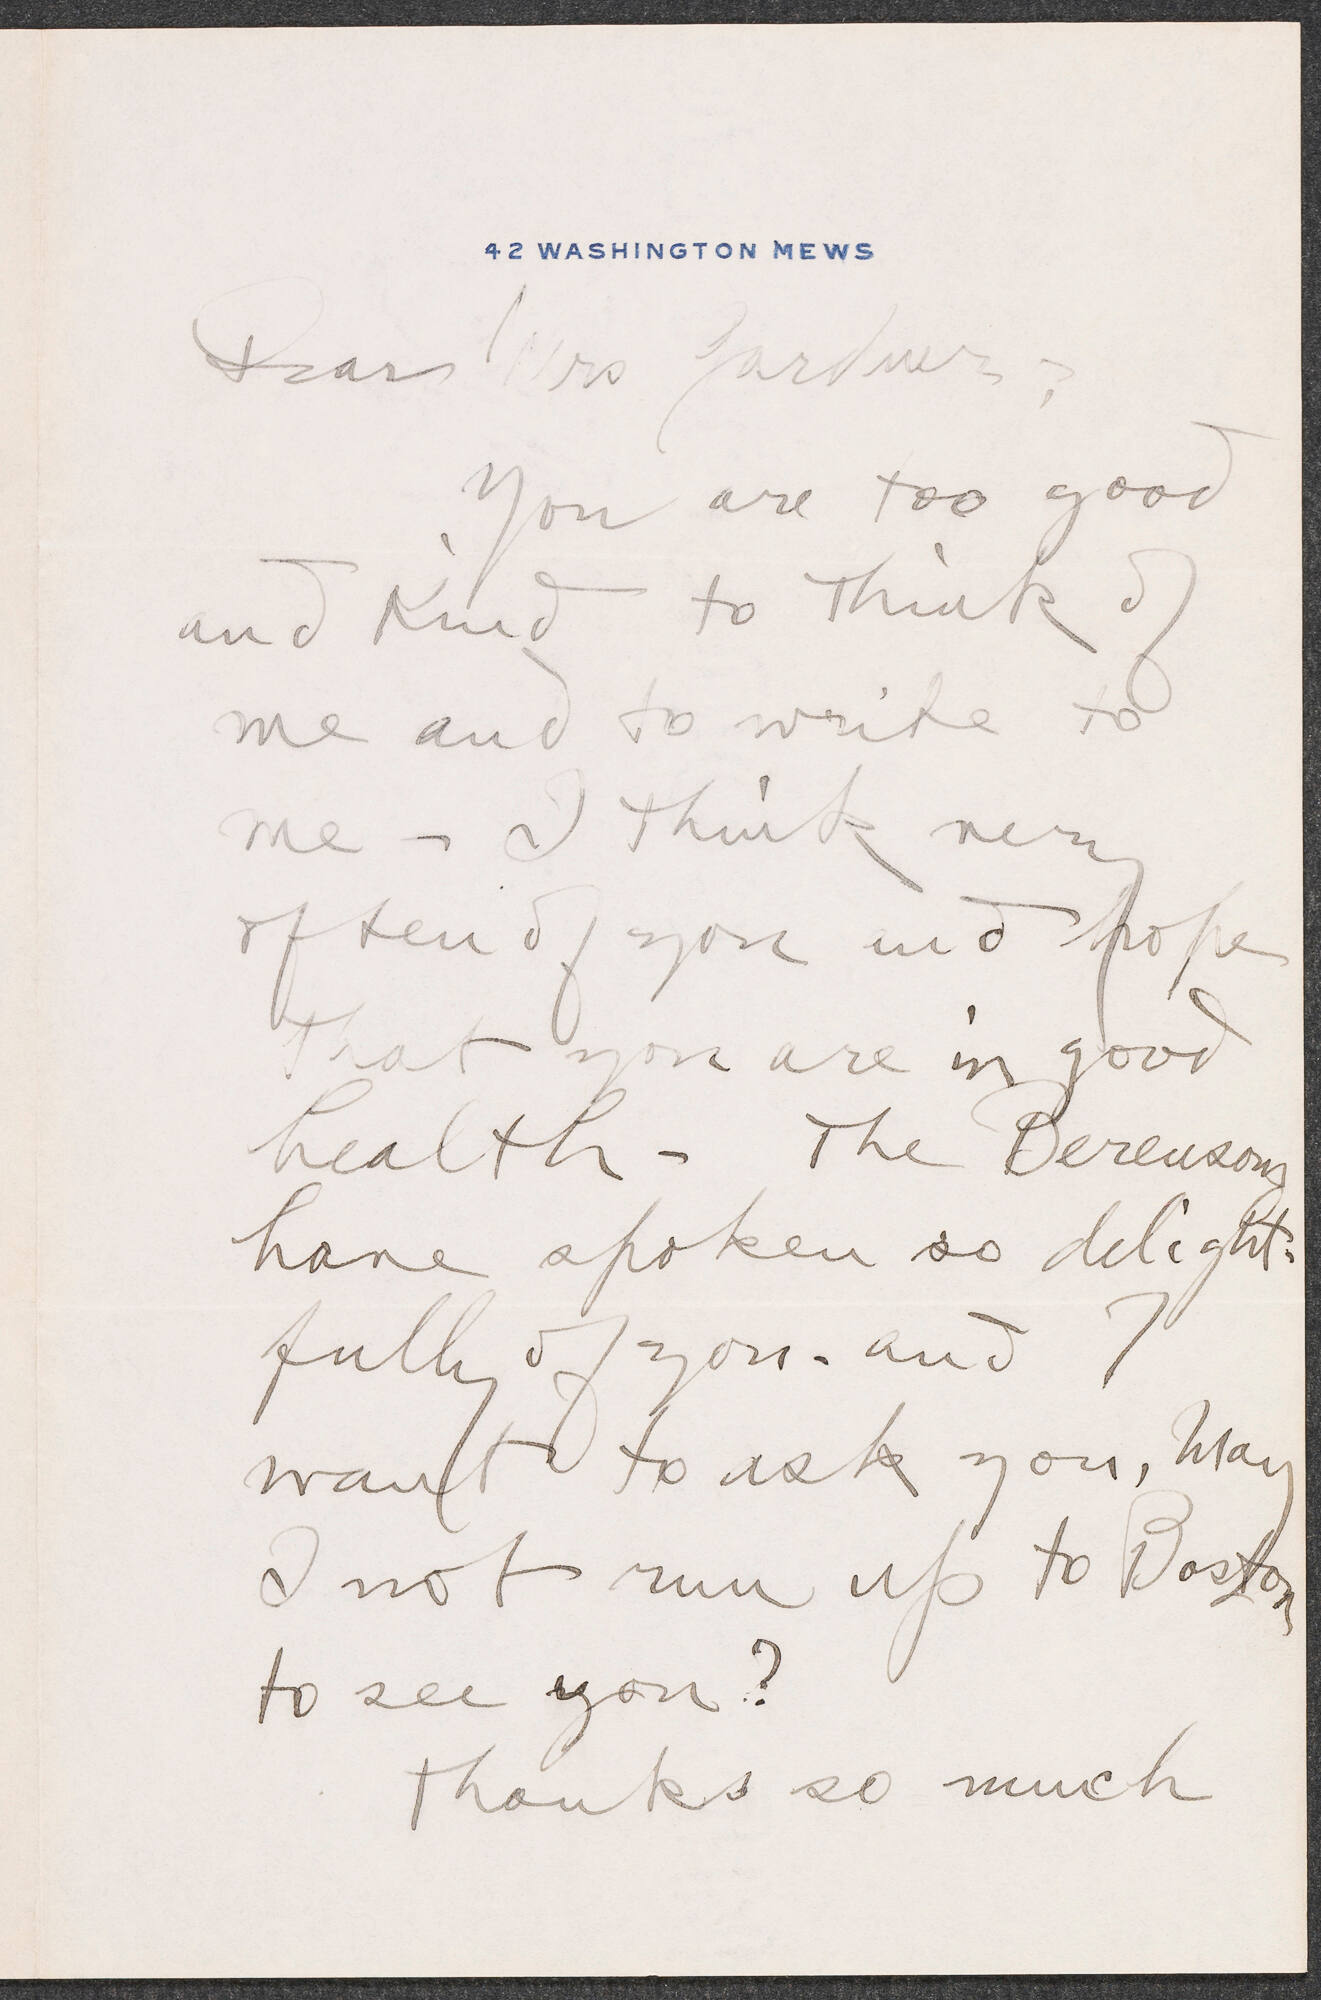 42 WASHINGTON MEWS
Dear Mrs Gardner,
You are too good
and kind to think of
me and to write to
me - I think very
often of you and hope
that you are in good
health - The Berensons
have spoken so delight-
fully of you - and I
want to ask you, May
I not run up to Boston
to see you?
Thanks so much